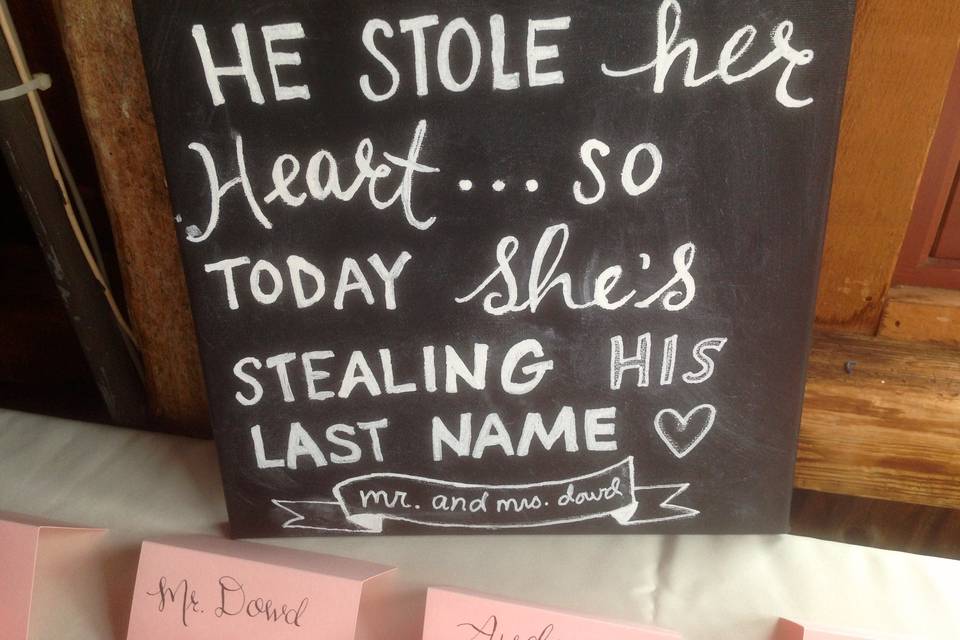 HE STOLE her
Heart... so
TODAY she's
STEALING HIS
LAST NAME
mr. and mrs. dowd
Mr. Dowd